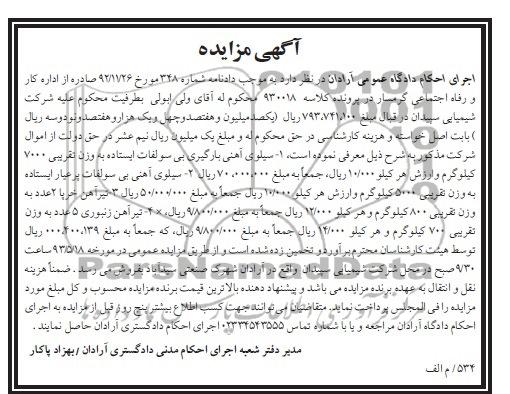 آگهی مزایده
اجرای احکام دادگاه عمومی آرادان در نظر دارد به موجب دادنامه شماره ۳۴۸ مورخ ۹۲/۱۱/۲۶ صادره از اداره کار
و رفاه اجتماعی گرمسار در پرونده کلاسه ۹۳۰۰۱۸ محکوم له آقای ولی ابولی بطرفیت محکوم علیه شرکت
شیمیایی سپیدان در قبال مبلغ ۷۹۳،۷۴۱،۱۰۰ ریال (یکصدمیلیون وهفتصدوچهل ویک هزاروهفتصدونودوسه ریال
) بابت اصل خواسته و هزینه کارشناسی در حق محکوم له و مبلغ یک میلیون ریال نیم عشر در حق دولت از اموال
شرکت مذکور به شرح ذیل معرفی نموده است، ۱- سیلوی آهنی بارگیری بی سولفات ایستاده به وزن تقریبی ۷۰۰۰
کیلوگرم وارزش هر کیلو ۱۰/۰۰۰ ریال، جمعاً به مبلغ ۷۰،۰۰۰،۰۰۰ ریال ۲- سیلوی آهنی بی سولفات پرعیار ایستاده
به وزن تقریبی ۵۰۰۰ کیلوگرم وارزش هر کیلو ۱۰/۰۰۰ ریال جمعاً به مبلغ ۵۰/۰۰۰/۰۰۰ ریال ۳-تیرآهن خرپا ۲عدد به
وزن تقریبی ۸۰۰ کیلوگرم و هر کیلو ۱۲/۰۰۰ ریال جمعاً به مبلغ ۹/۸۰۰/۰۰۰ ریال، × ۴- تیرآهن زنبوری ۵عدد به وزن
تقریبی ۷۰۰ کیلوگرم و هر کیلو ۱۴/۰۰۰ ریال جمعاً به مبلغ ۹/۸۰۰/۰۰۰ ریال، که جمعاً به مبلغ ۰۰۰،۴۰۰،۱۳۹ ریال
توسط هیئت کارشناسان محترم برآورد و تخمین زده شده است و از طریق مزایده عمومی در مورخه ۹۳/۵/۱۸ ساعت
۹/۳۰ صبح در محل شرکت شیمیایی سپیدان واقع در آرادان شهرک صنعتی سیدآباد بفروش می رسد . ضمناً هزینه
نقل و انتقال به عهده برنده مزایده می باشد و پیشنهاد دهنده بالاترین قیمت برنده مزایده محسوب و کل مبلغ مورد
مزایده را فی المجلس پرداخت نماید. متقاضیان می توانند جهت کسب اطلاع بیشتر پنج روز قبل از مزایده به اجرای
احکام دادگاه آرادان مراجعه و یا با شماره تماس ۰۲۳۳۴۵۴۳۵۵۵ اجرای احکام دادگستری آرادان حاصل نمایند .
مدیر دفتر شعبه اجرای احکام مدنی دادگستری آرادان / بهزاد پاکار
۵۳۴/ م الف